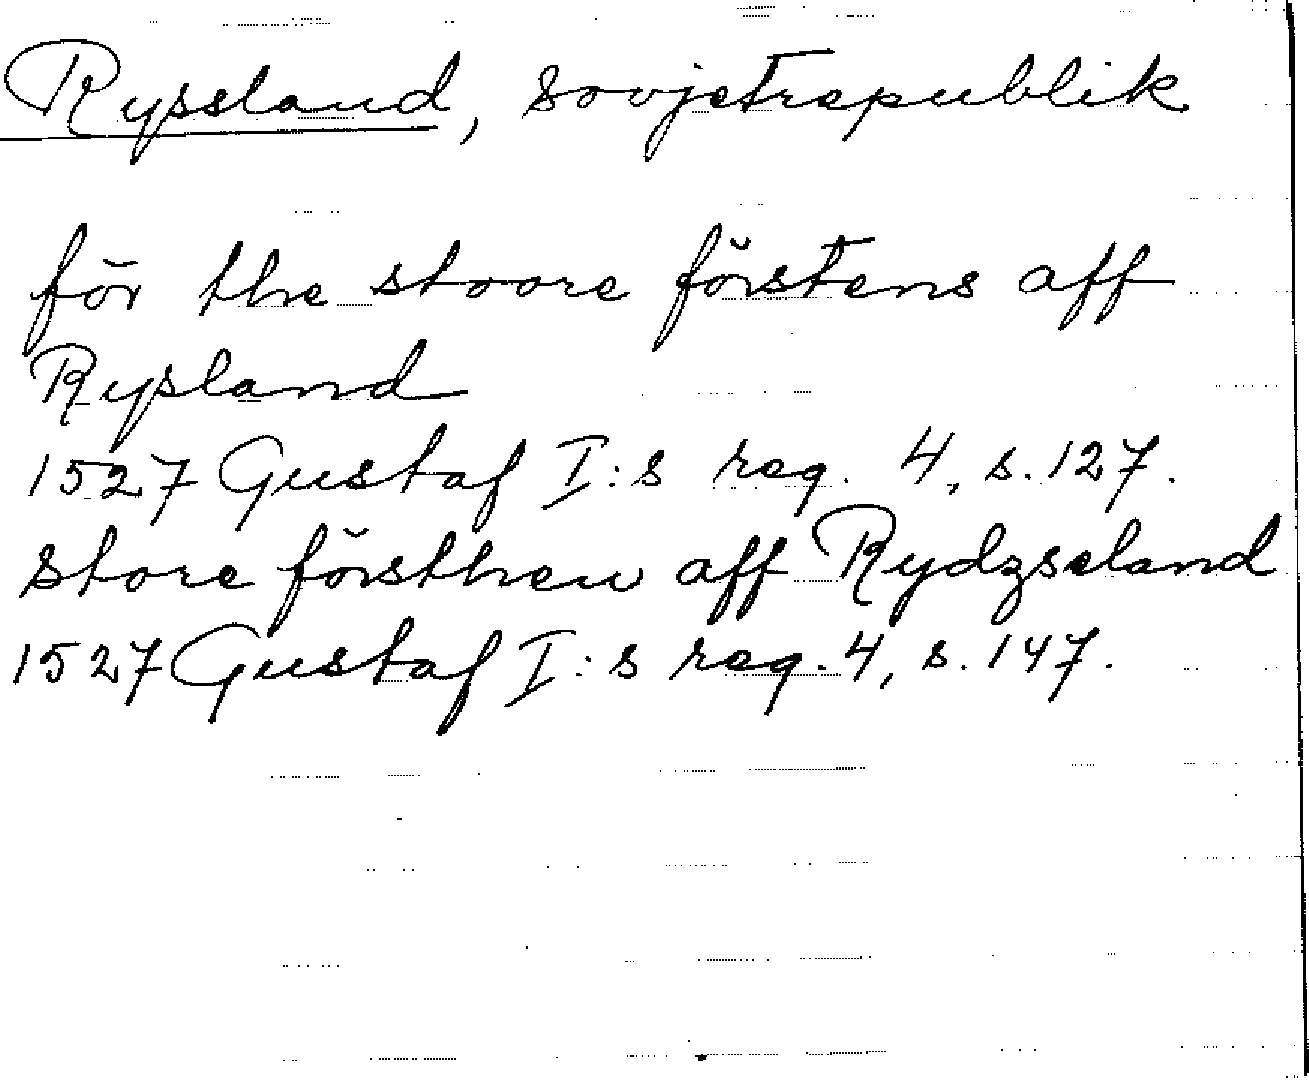 Ryssland, sovjetrepublik
för the stoore förstens aff
Rysland
1527 Gustaf I:s reg. 4, s. 127.
store försthen aff Rydzseland
1527 Gustaf I:s reg. 4, s. 147.